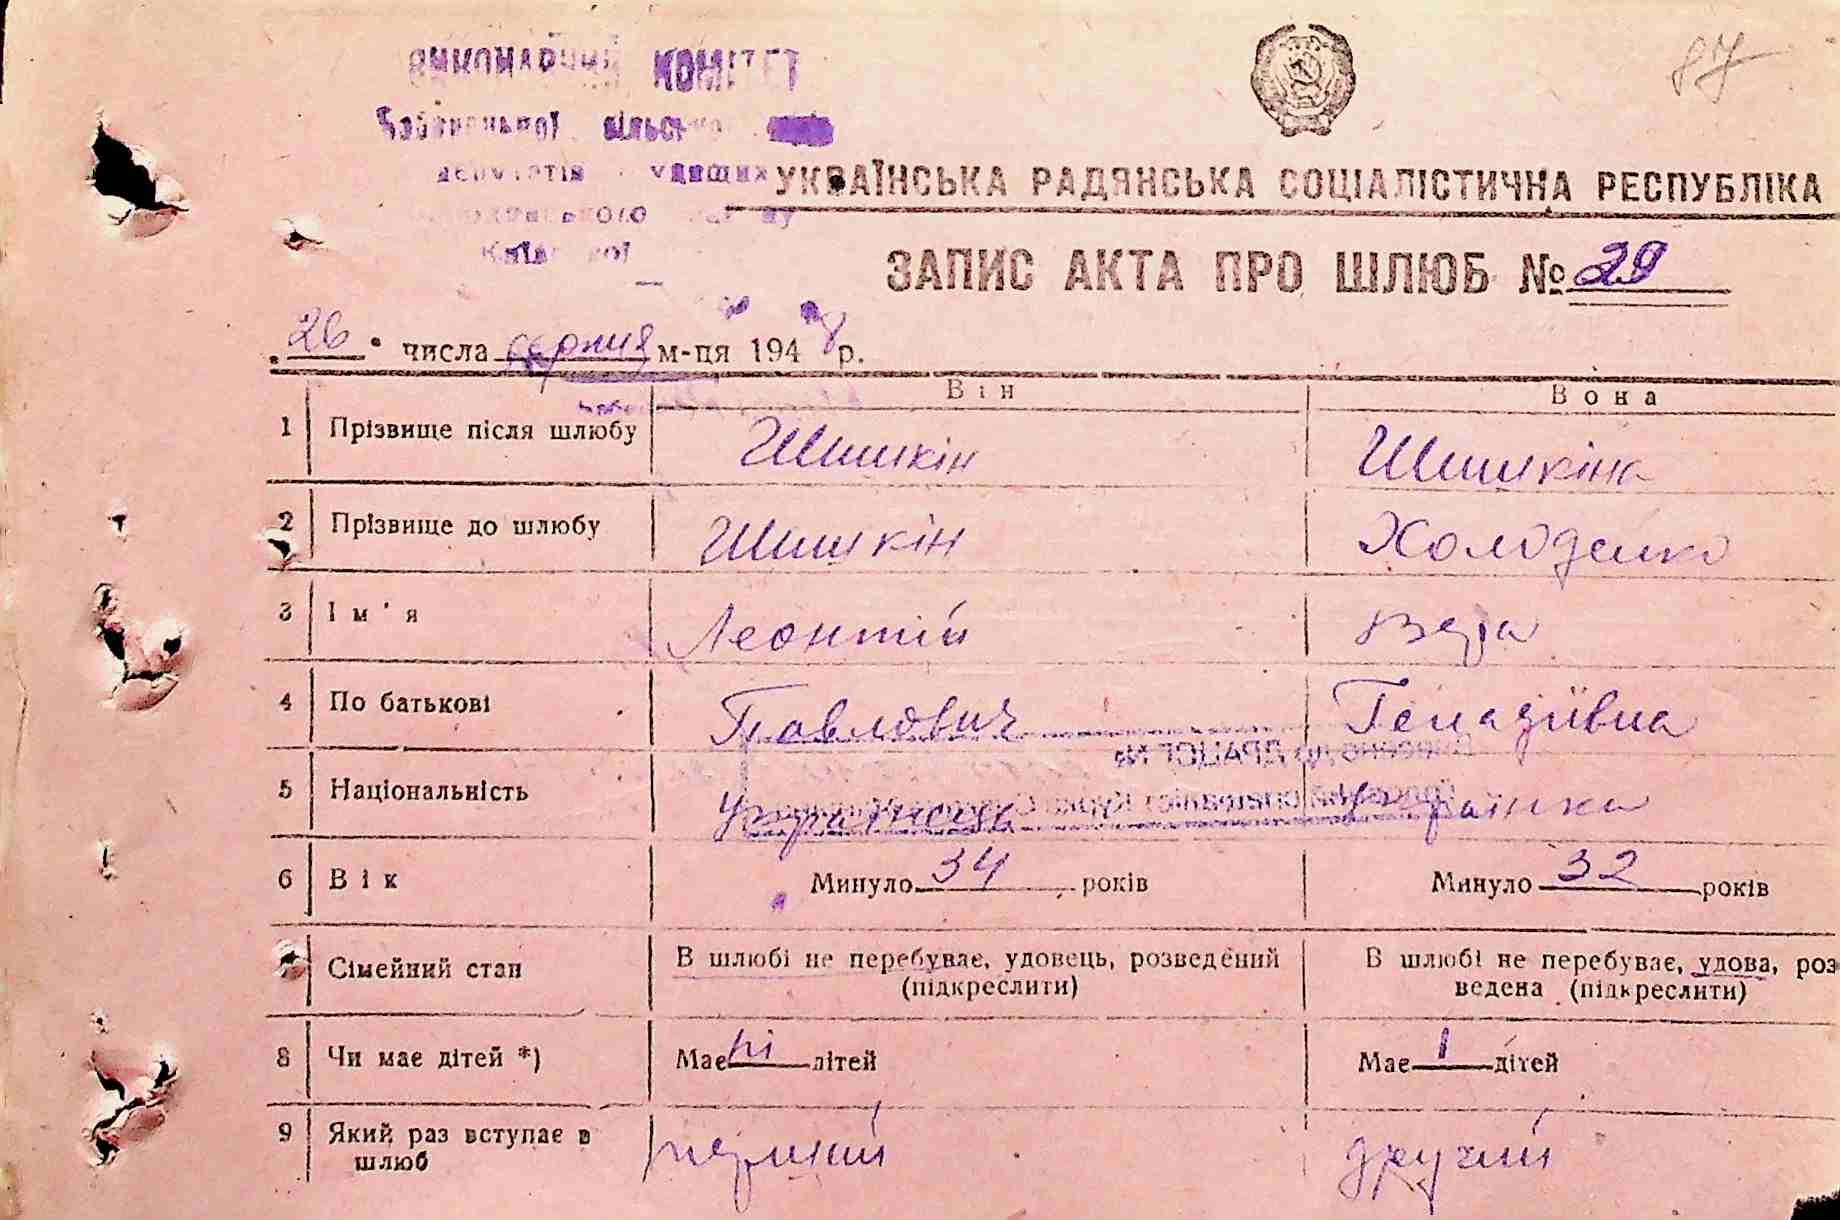 87
ВИКОНАВЧИЙ КОМІТЕТ
УКРАЇНСЬКА РАДЯНСЬКА СОЦІАЛІСТИЧНА РЕСПУБЛІКА
ЗАПИС АКТА ПРО ШЛЮБ № 29
„26“ числа серпня м-ця 1948 р.
Він Вона
1 Прізвище після шлюбу Шишкін Шишкіна
2 Прізвище до шлюбу Шишкін Холоденко
3 Ім'я Леонтій Вера
4 По батькові Павлович Генадіївна
5 Національність Українець Українка
6 Вік Минуло 34 років Минуло 32 років
7 Сімейний стан В шлюбі не перебуває, удовець, розведений (підкреслити) В шлюбі не перебуває, удова, роз
ведена (підкреслити)
8 Чи має дітей *) Має ні дітей Має 1 дітей
9 Який раз вступає в шлюб перший другий